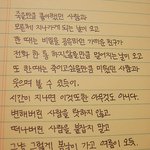 죽을만큼 좋아했던 사람과
모른체 지나가게 되는 날이 오고
한때는 비밀을 공유하던 가까운 친구가
전화 한통 하지않을만큼 멀어지는 날이 오고
또 한때는 죽이고싶을만큼 미웠던 사람과
웃으며 볼 수 있듯이,
시간이 지나면 이것또한 아무것도 아니다.
변해버린 사람을 탓하지 않고
떠나버린 사람을 붙잡지 말고
그냥 그렇게 봄날이 가고 여름이 오듯